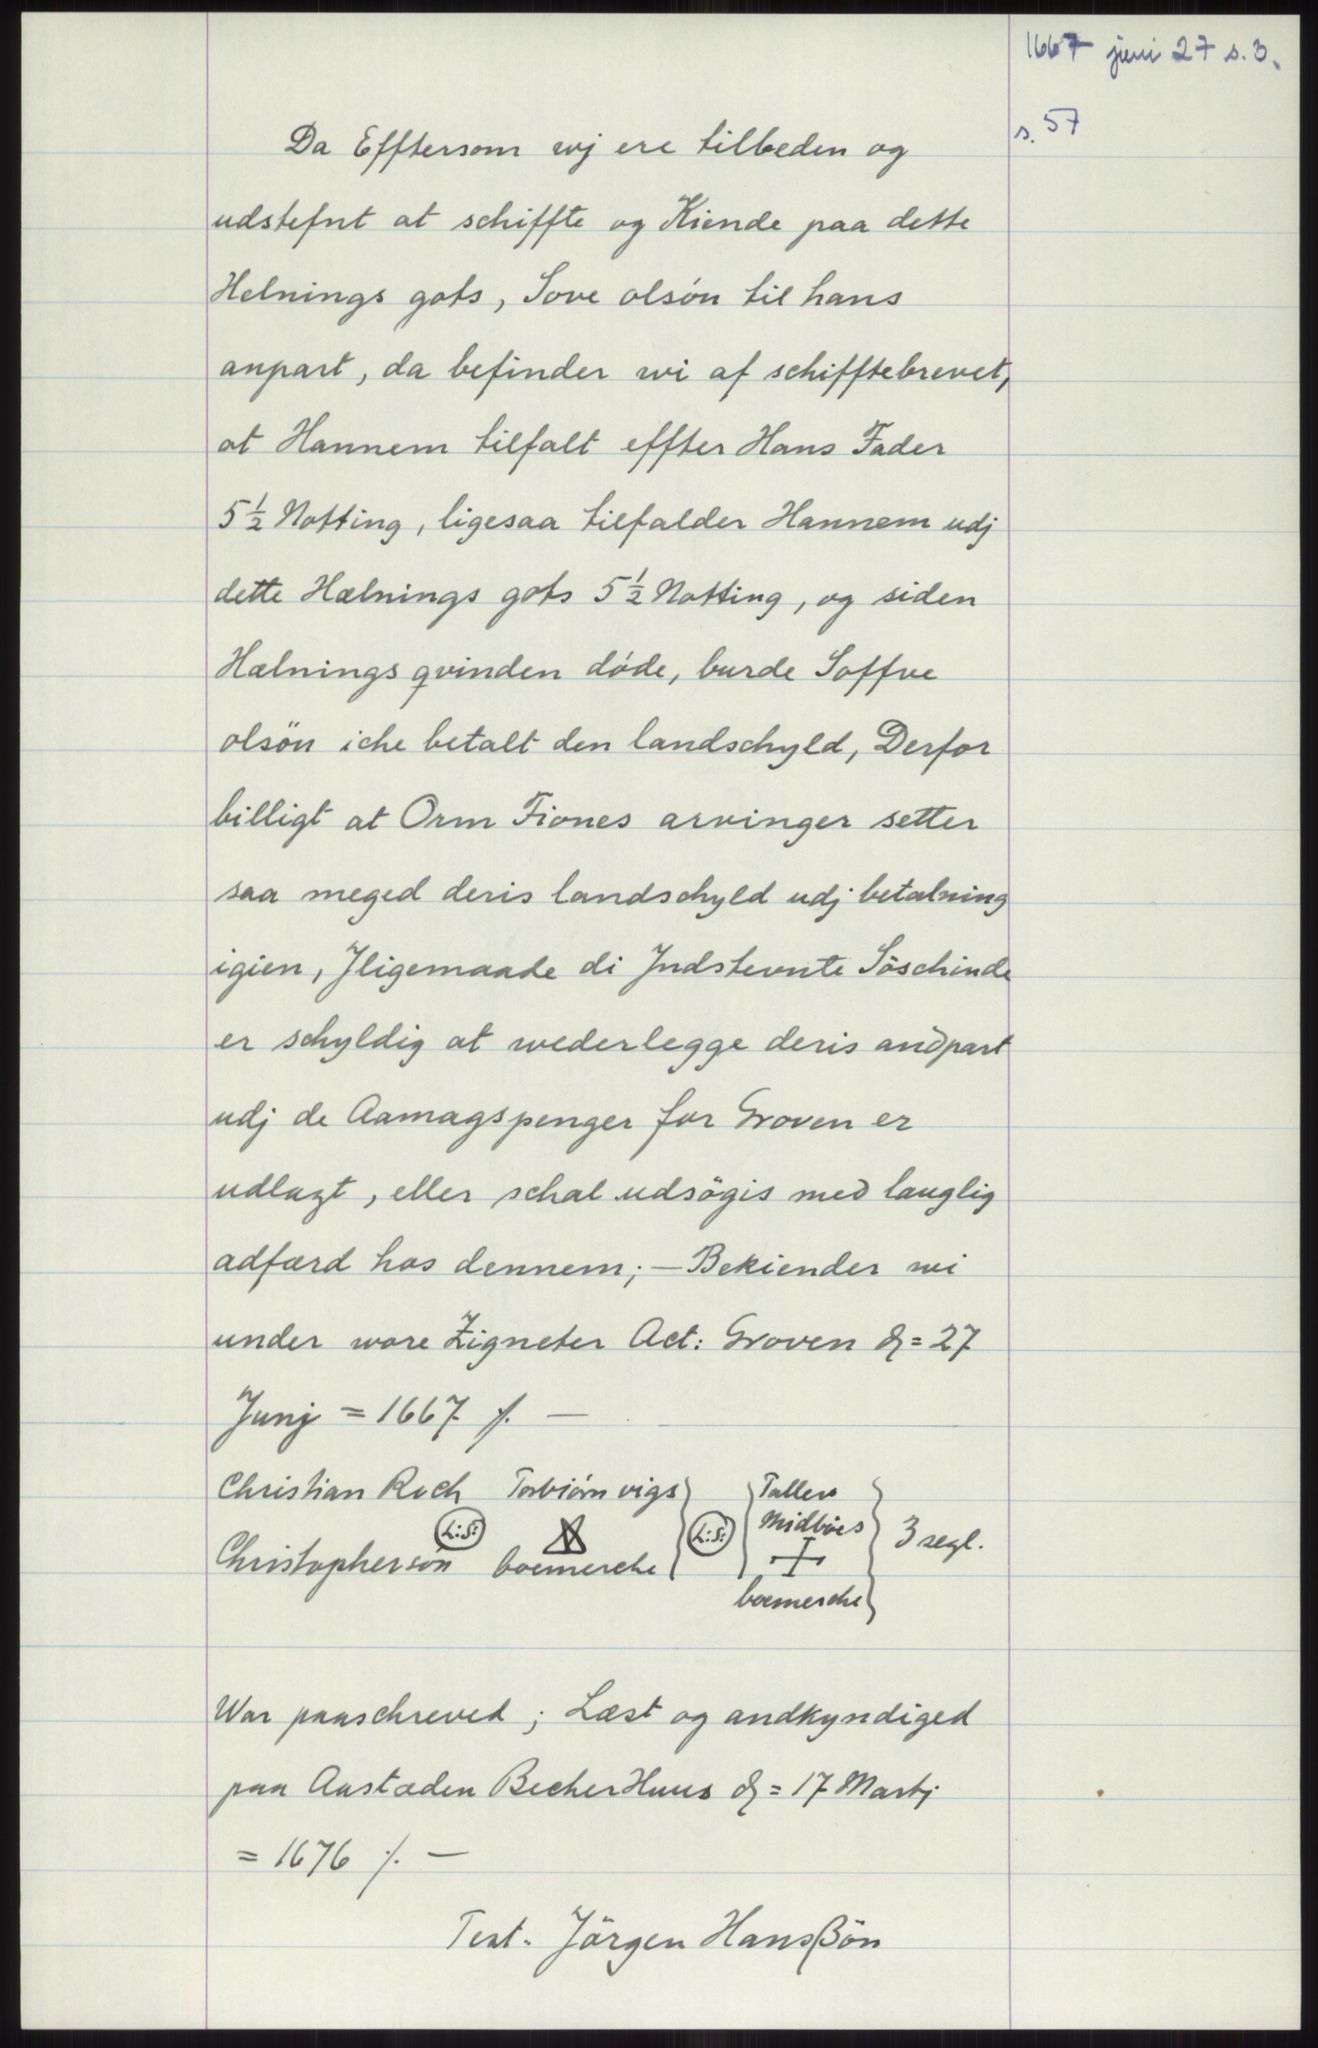 1667 juni 27 s. 3.
s. 57
Da Efftersom wj ere tilbeden og
udstefnt at schiffte og Kiende paa dette
Helnings gots, Sove olsön til hans
anpart, da befinder wi af schifftebrevet,
at Hannem tilfalt effter Hans Fader
5 1/2 Notting, ligesaa tilfalder Hannem udj
dette Hælnings gots 5 1/2 Notting, og siden
Hælnings qvinden döde, burde Soffve
olsön iche betalt den landschyld, Derfor
billigt at Orm Fiones arvinger setter
saa meged deris landschyld udj betalning
igien, Jligemaade di Jndstevnte Söschinde
er schyldig at wederlegge deris andpart
udj de Aamagspenger for Groven er
udlagt, eller schal udsögis med lauglig
adfærd hos dennem; — Bekiender wi
under wore Zigneter Act: Groven d. = 27
Junj = 1667 ./. —
Christian Rech Torbiörn vigs Tallev
L:S: L:S: Midböes 3 segl.
Christophersön boemerche
boemerche
War paaschreved; Læst og andkyndiged
paa Aastæden BecherHuus d. = 17 Martj
= 1676 ./. —
Test. Jörgen Hansßön